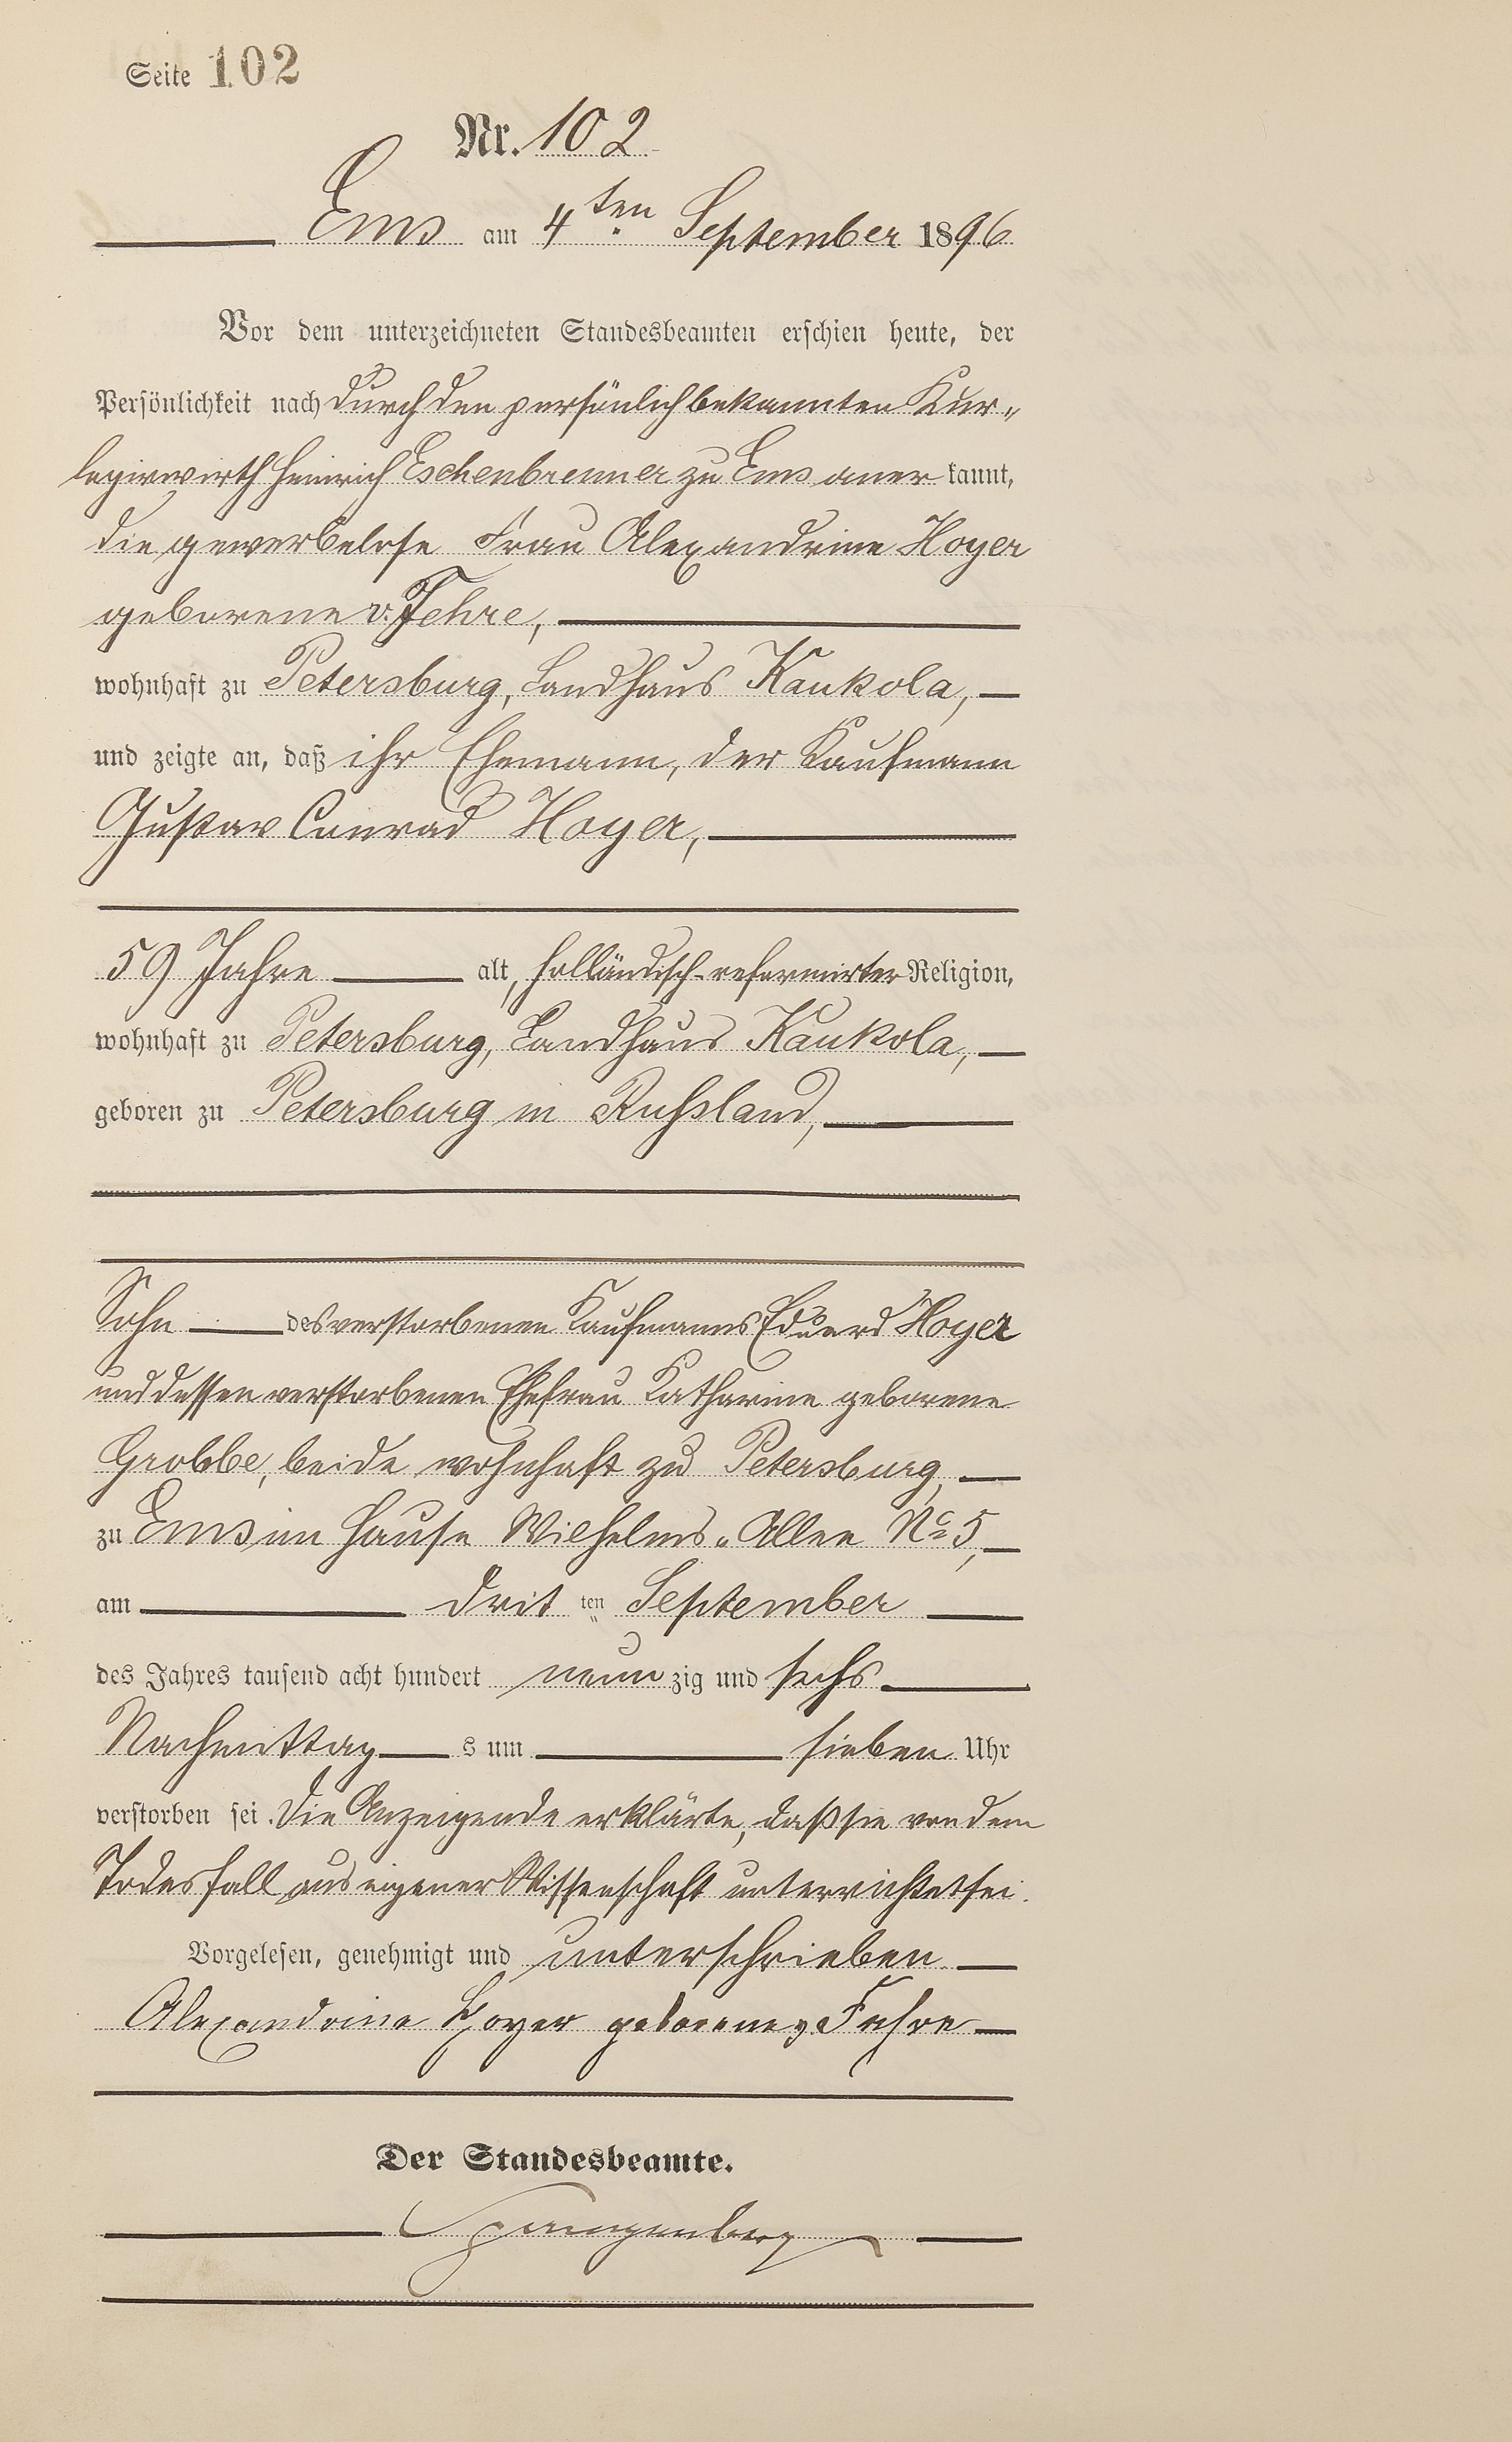 Seite 102
Nr. 102
Ems am 4ten September 1896
Vor dem unterzeichneten Standesbeamten erschien heute, der
Persönlichkeit nach durch den persönlich bekannten Kur-
logirwirth Heinrich Eschenbrenner zu Ems aner kannt,
die gewerbelose Frau Alexandrine Hoyer
geborene v. Fehre,
wohnhaft zu Petersburg, Landhaus Kaukola,
und zeigte an, daß ihr Ehemann, der Kaufmann
Gustav Conrad Hoyer,
59 Jahre alt, holländisch-reformirter Religion,
wohnhaft zu Petersburg, Landhaus Kaukola,
geboren zu Petersburg in Russland,
Sohn des verstorbenen Kaufmanns Eduard Hoyer
und dessen verstorbenen Ehefrau Katharine geborene
Grobbe, beide wohnhaft zu Petersburg,
zu Ems im Hause Wilhelms-Allee No 5,
am drit ten September
des Jahres tausend acht hundert neun zig und sechs
Nachmittag s um sieben Uhr
verstorben sei. Die Anzeigende erklärte, daß sie von dem
Todesfall aus eigener Wissenschaft unterrichtet sei.
Vorgelesen, genehmigt und unterschrieben
Alexandrine Hoyer geborene v Fehre
Der Standesbeamte.
Spangenberg